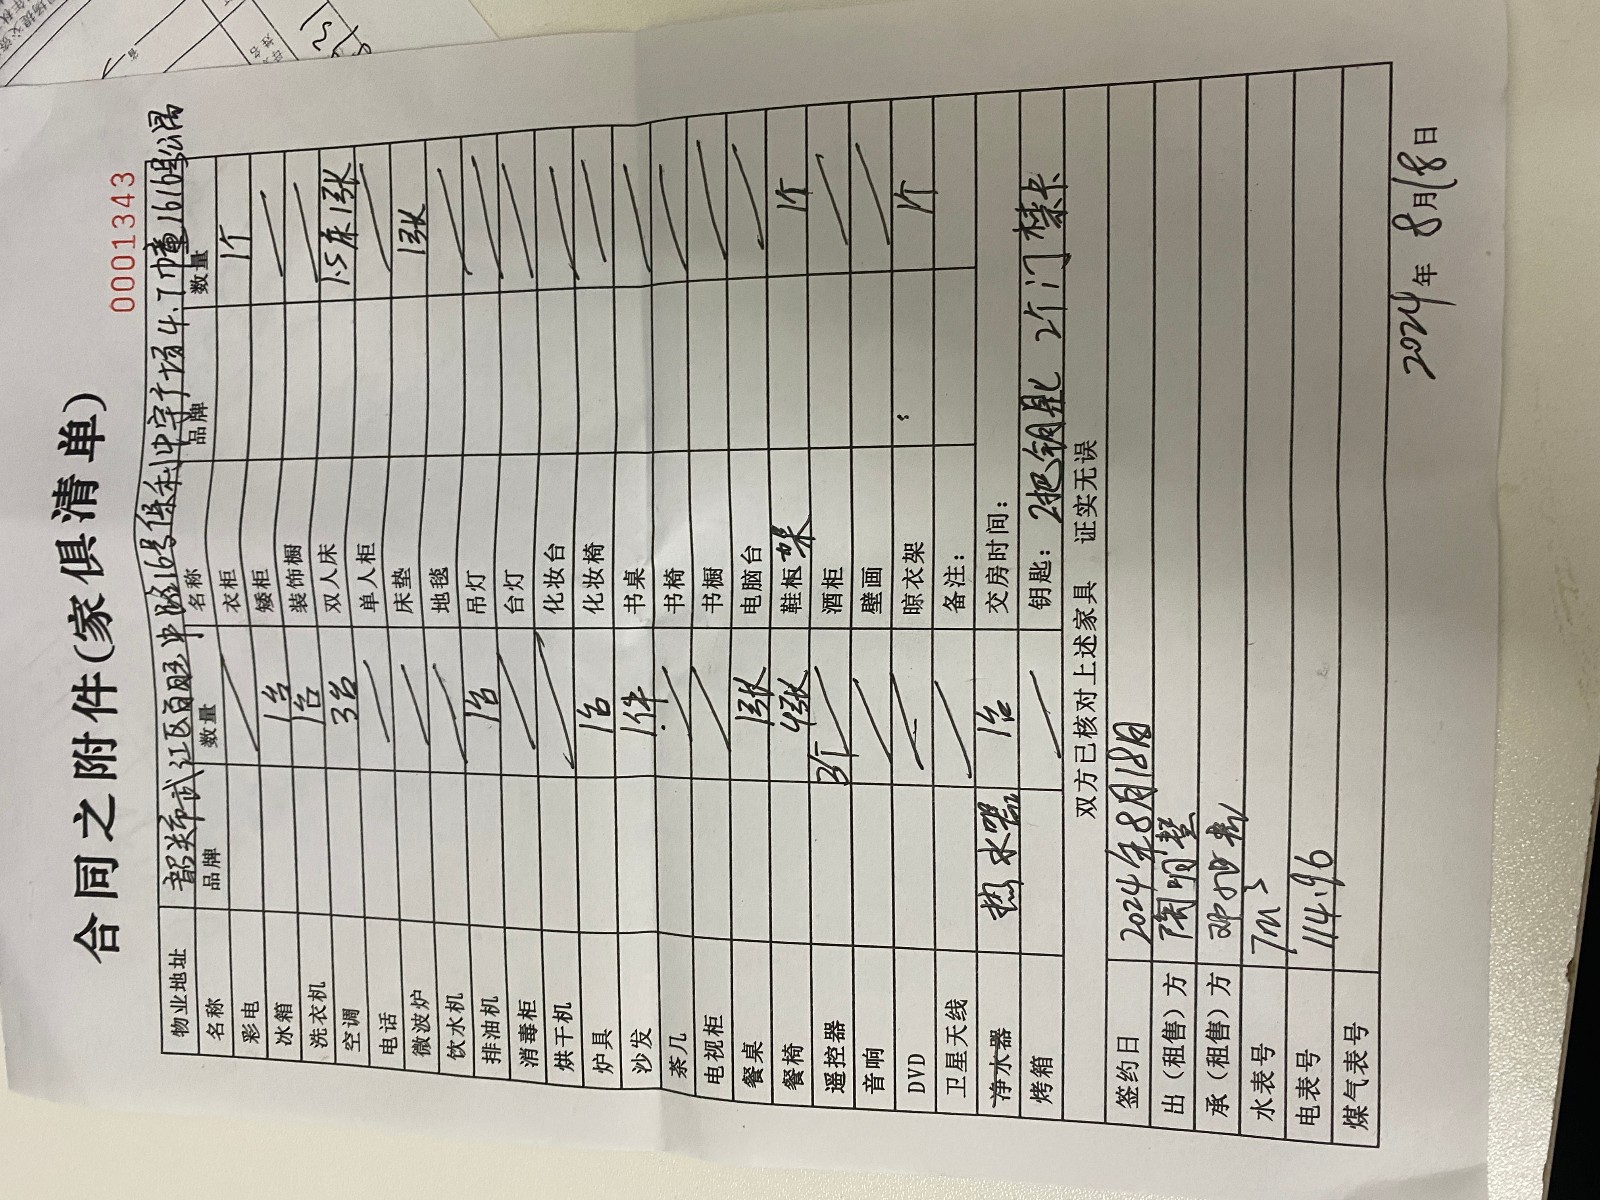 合同之附件(家俱清单)
0001343
物业地址 韶关市武江区百旺中路16号保利中宇广场4.7幢1616号公寓
名称 品牌 数量 名称 品牌 数量
彩电 衣柜 1个
冰箱 1台 矮柜
洗衣机 1台 装饰橱
空调 3台 双人床 1.5床1张
电话 单人柜
微波炉 床垫 1张
饮水机 地毯
排油机 1台 吊灯
消毒柜 台灯
烘干机 化妆台
炉具 1台 化妆椅
沙发 1件 书桌
茶几 书椅
电视柜 书橱
餐桌 1张 电脑台
餐椅 4张 鞋柜架 1个
遥控器 3个 酒柜
音响 壁画
DVD 晾衣架 1个
卫星天线 备注:
净水器 热水器 1台 交房时间:
烤箱 钥匙: 2把钥匙 2个门禁卡
双方已核对上述家具 证实无误
签约日 2024年8月18日
出(租售)方
承(租售)方
水表号 7m3
电表号 114.96
煤气表号
2024年 8月18日